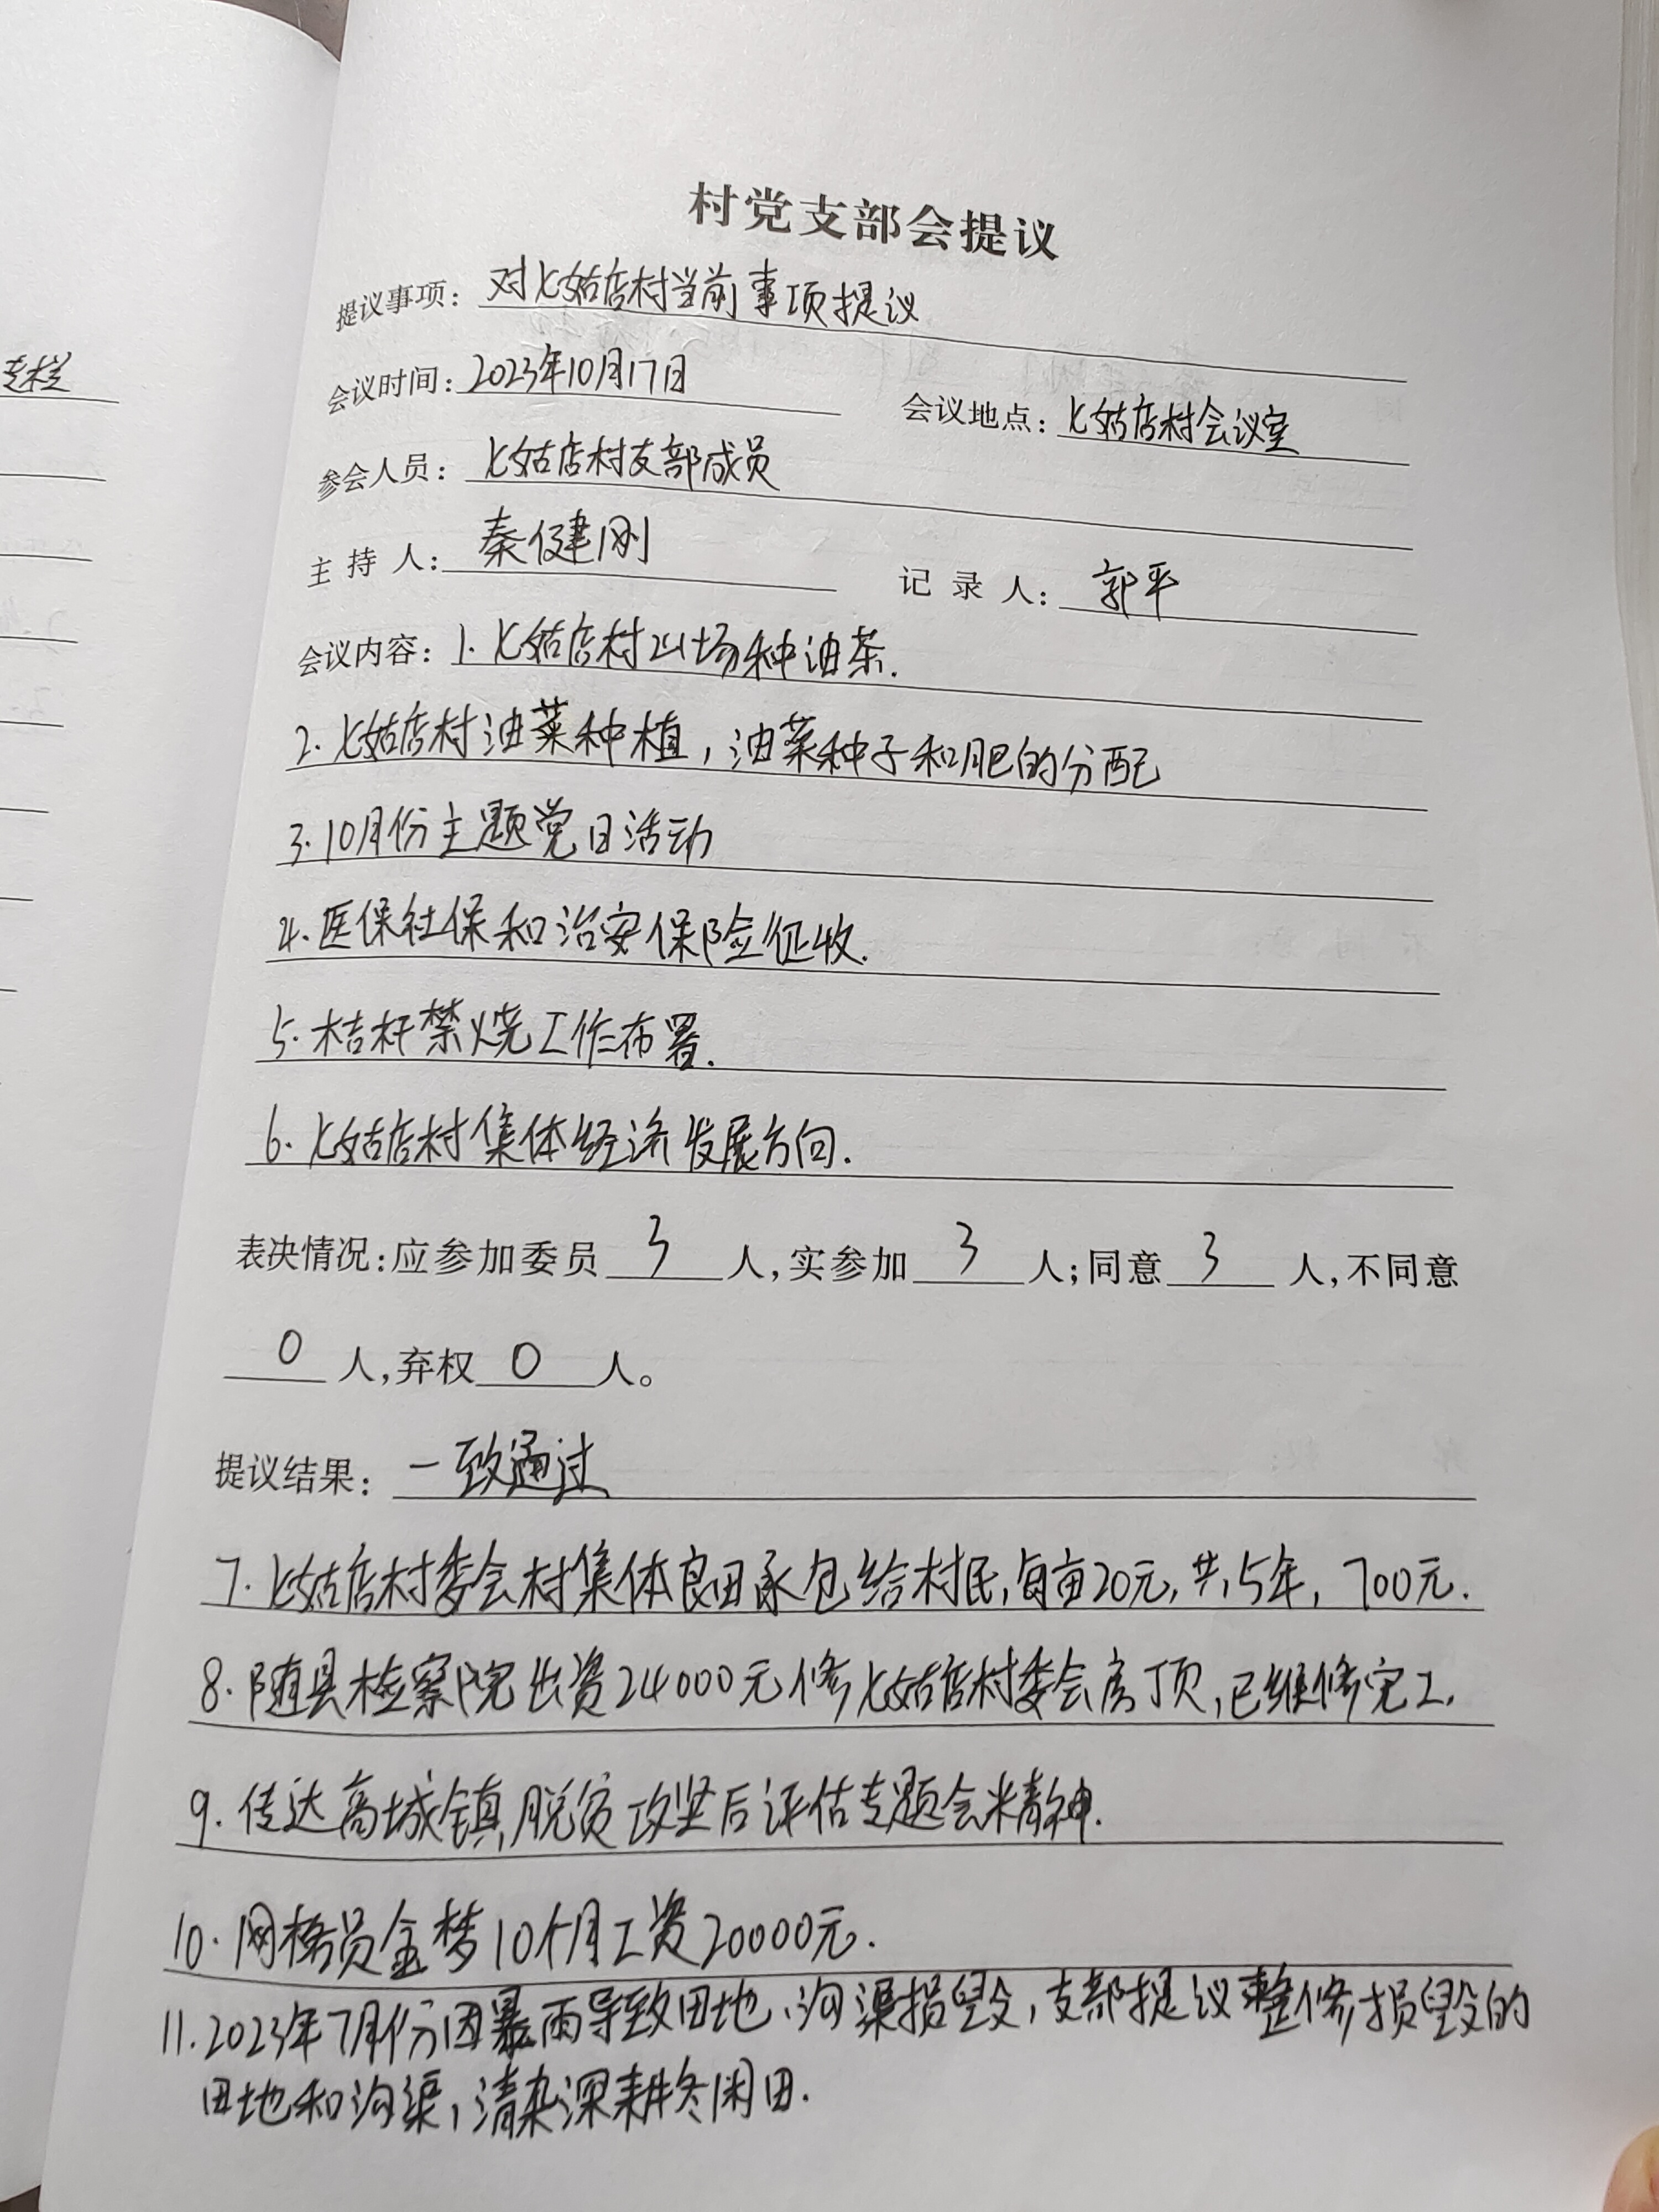 村党支部会提议
提议事项：对七姑店村当前事项提议
会议时间：2023年10月17日 会议地点：七姑店村会议室
参会人员：七姑店村支部成员
主持人：秦健刚 记录人：郭平
会议内容：1.七姑店村山场种油茶.
2.七姑店村油菜种植，油菜种子和肥的分配
3.10月份主题党日活动
4.医保社保和治安保险征收.
5.桔杆禁烧工作布署.
6.七姑店村集体经济发展方向.
表决情况：应参加委员3人，实参加3人；同意3人，不同意
0人，弃权0人。
提议结果：一致通过
7.七姑店村委会村集体良田承包给村民，每亩20元，共5年，700元.
8.随县检察院出资24000元修七姑店村委会房顶，已维修完工.
9.传达高城镇脱贫攻坚后评估专题会精神.
10.网格员金梦10个月工资20000元.
11.2023年7月份因暴雨导致田地、沟渠损毁，支部提议整修损毁的
田地和沟渠，清杂深耕冬闲田.